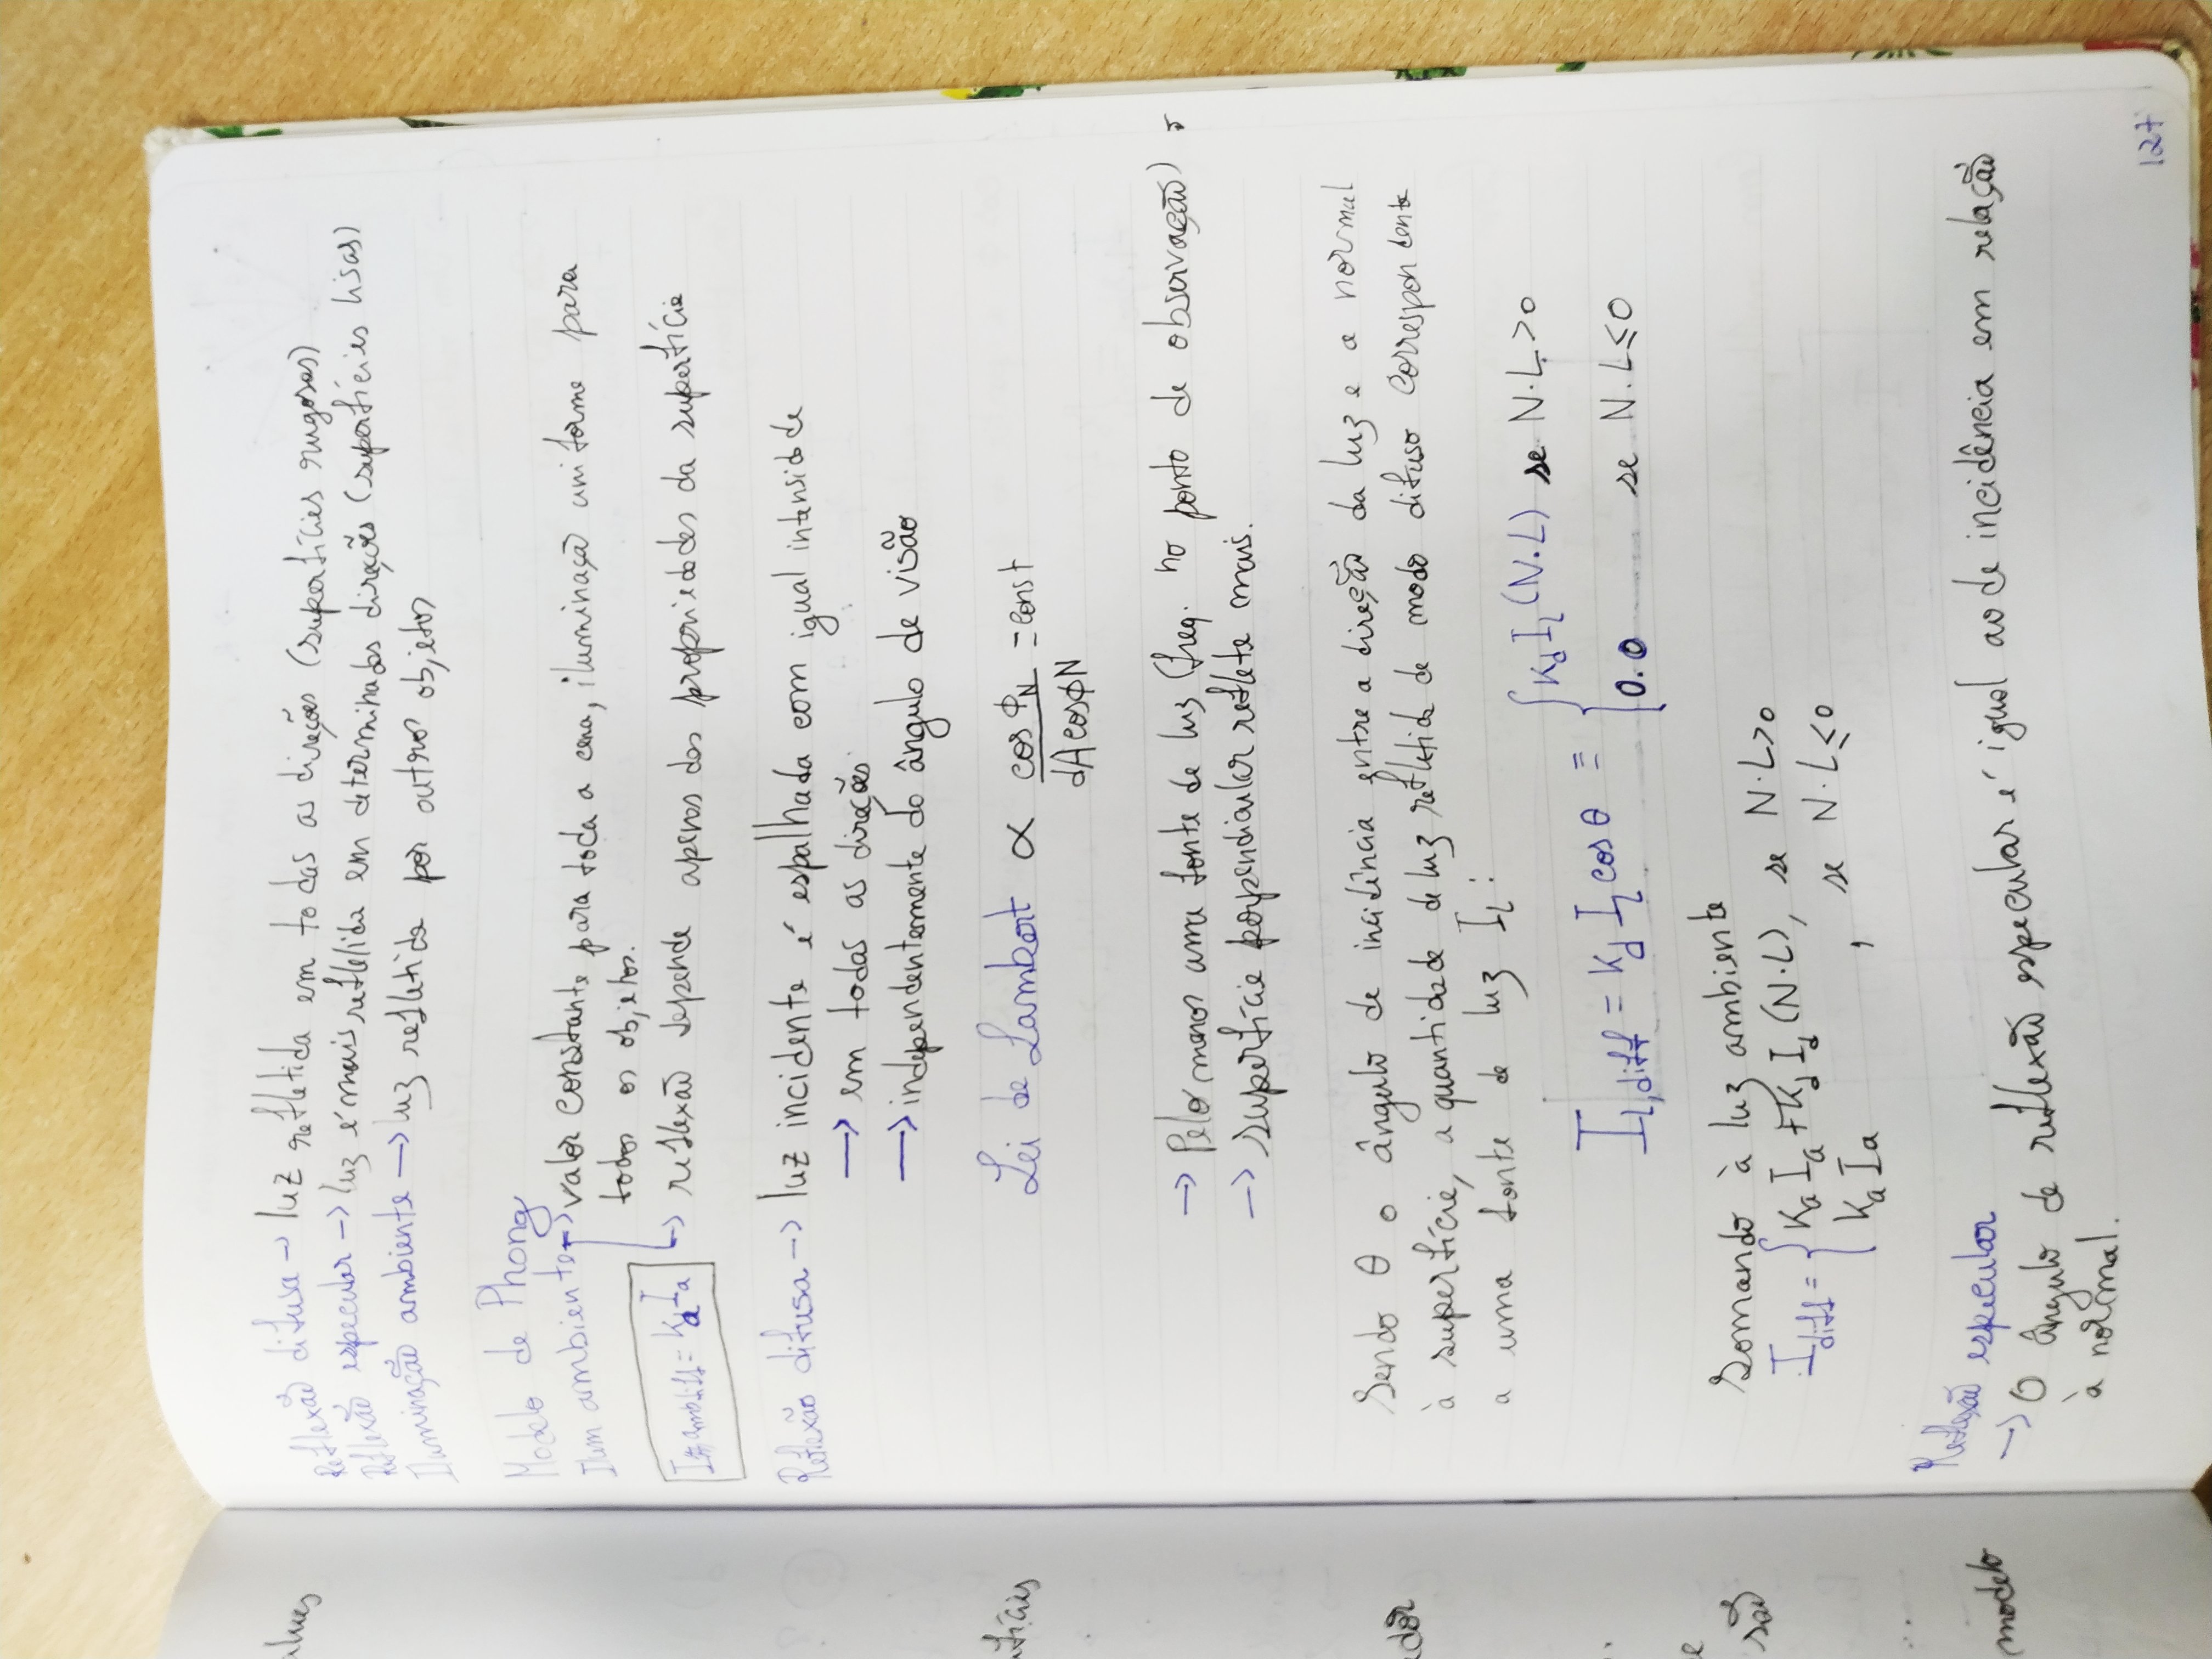 Reflexão difusa → luz refletida em todas as direções (superfícies rugosas)
Reflexão especular → luz é mais refletida em determinadas direções (superfícies lisas)
Iluminação ambiente → luz refletida por outros objetos
Modelo de Phong
Ilum ambiente → valor constante para toda a cena, iluminação uniforme para
todos os objetos.
I ambdiff = Ka Ia
↳ reflexão depende apenas das propriedades da superfície
Reflexão difusa → luz incidente é espalhada com igual intensidade
→ em todas as direções
→ independentemente do ângulo de visão
Lei de Lambert ∝ cos ϕN / dA cos ϕN = const
→ Pelo menos uma fonte de luz (freq. no ponto de observação)
→ superfície perpendicular reflete mais.
Sendo θ o ângulo de incidência entre a direção da luz e a normal
à superfície, a quantidade de luz refletida de modo difuso correspondente
a uma fonte de luz Il:
Il,diff = Kd Il cos θ ≡ { Kd Il (N.L) se N.L > 0
0.0 se N.L ≤ 0
Somando à luz ambiente
Idiff = { Ka Ia + Kd Id (N.L), se N.L > 0
Ka Ia , se N.L ≤ 0
Reflexão especular
→ O ângulo de reflexão especular é igual ao de incidência em relação
à normal.
127
alues
dor
e
são
modelo